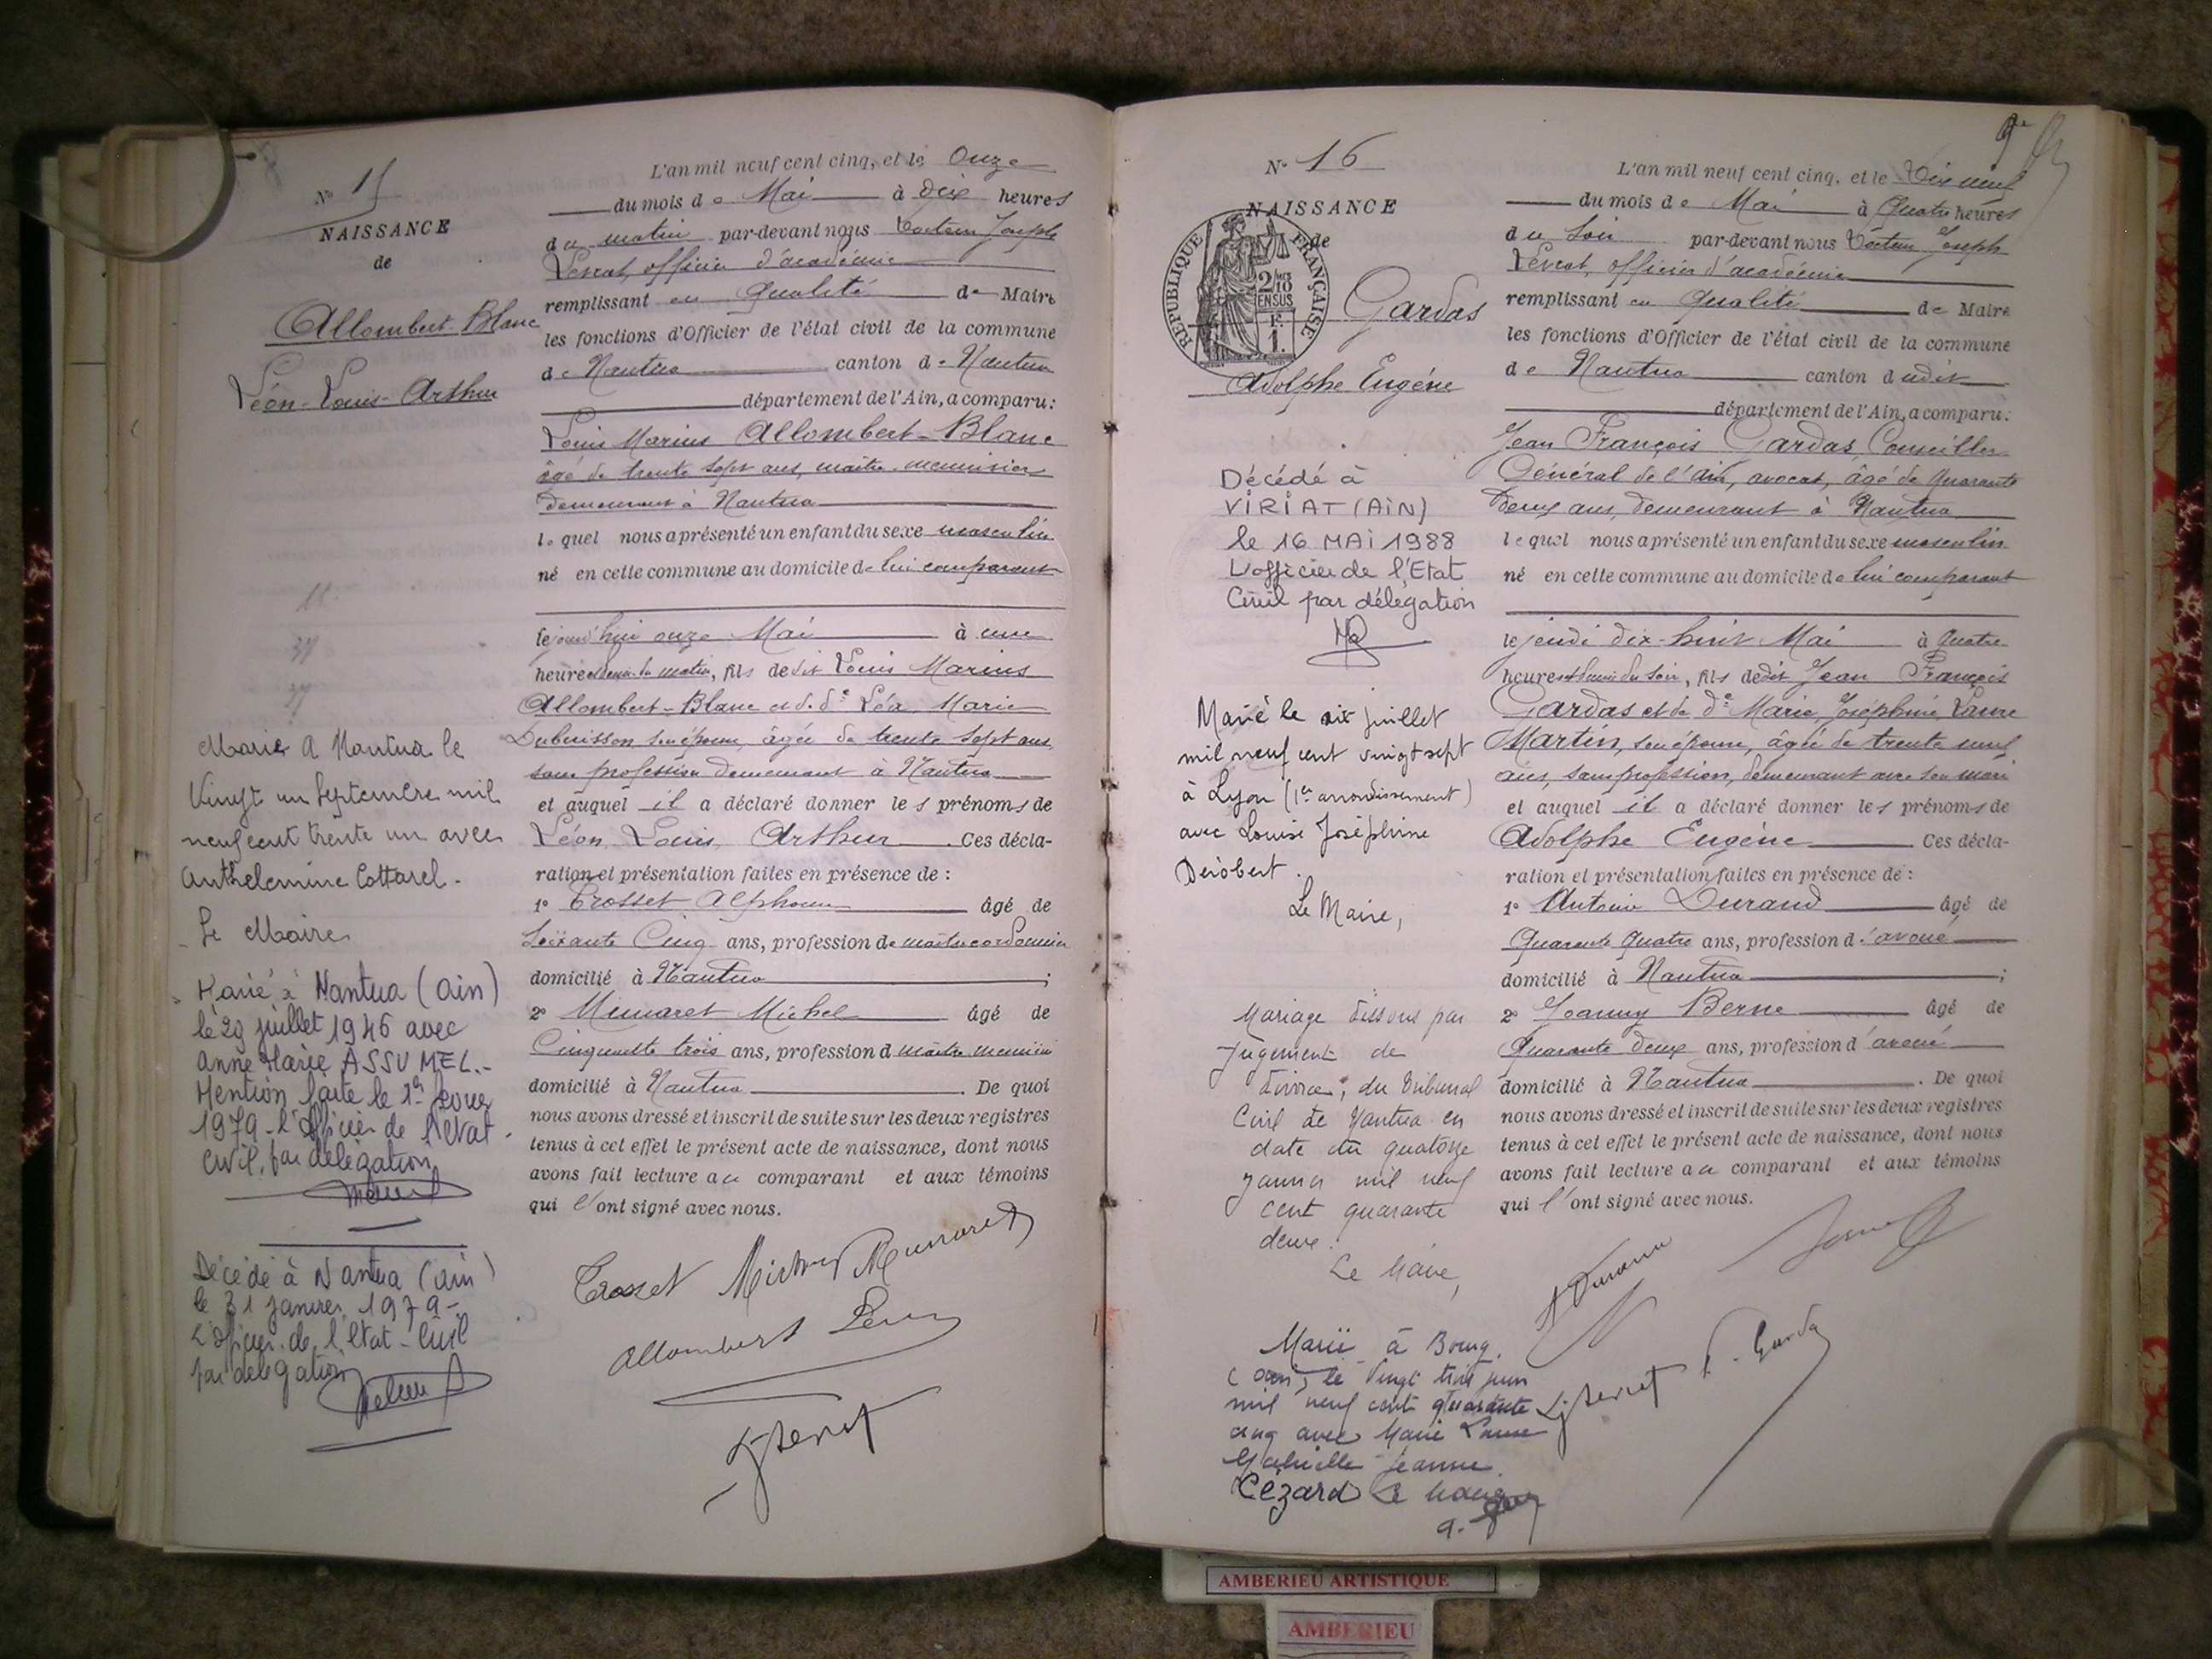 N° 15
NAISSANCE
de
Allombert-Blanc
Léon-Louis-Arthur
Marié à Nantua le
Vingt un Septembre mil
neuf cent trente un avec
Anthelemine Cottarel.
Le Maire
Marié à Nantua (ain)
le 29 juillet 1946 avec
Anne Marie ASSUMEL.-
Mention faite le 1er
1979 - l'officier de l'état
civil, par délégation
Décédé à Nantua (ain)
le 31 janvier 1979-
L'officier de l'Etat-Civil
par délégation
L'an mil neuf cent cinq, et le Onze
du mois de Mai à dix heures
du matin par-devant nous Docteur Joseph
Levrat, officier d'académie
remplissant en qualité de Maire
les fonctions d'Officier de l'état civil de la commune
de Nantua canton de Nantua
département de l'Ain, a comparu:
Louis Marius Allombert-Blanc
âgé de trente sept ans, maître menuisier
demeurant à Nantua
lequel nous a présenté un enfant du sexe masculin
né en cette commune au domicile de lui comparant
lejourd'hui onze Mai à une
heure et demie du matin, fils de dit Louis Marius
Allombert-Blanc et de de Léa Marie
Dubuisson son épouse, âgée de trente sept ans,
sans profession demeurant à Nantua
et auquel il a déclaré donner les prénoms de
Léon, Louis, Arthur. Ces décla-
ration et présentation faites en présence de :
1° Crosset Alphonse âgé de
Soixante Cinq ans, profession de maître cordonnier
domicilié à Nantua ;
2° Mimaret Michel âgé de
Cinquante trois ans, profession d maître menuisier
domicilié à Nantua. De quoi
nous avons dressé et inscrit de suite sur les deux registres
tenus à cet effet le présent acte de naissance, dont nous
avons fait lecture au comparant et aux témoins
qui l'ont signé avec nous.
Crosset Michel Mimaret
Allombert
Levrat
N° 16
NAISSANCE
de
RÉPUBLIQUE FRANÇAISE
2/10
EN SUS
1.
Gardas
Adolphe Eugène
Décédé à
VIRIAT (AIN)
le 16 MAI 1988
L'officier de l'Etat
Civil par délégation
Marié le six juillet
mil neuf cent vingt sept
à Lyon (1er arrondissement)
avec Louise Joséphine
Dérobert.
Le Maire,
Mariage dissous par
jugement de
divorce, du Tribunal
Civil de Nantua en
date du quatorze
janvier mil neuf
cent quarante
deux.
Le Maire,
Marié à Bourg.
(Ain) le Vingt trois juin
mil neuf cent quarante
cinq avec Marie Louise
Gabrielle Jeanne
Cézard Le Maire
L'an mil neuf cent cinq, et le Dix neuf
du mois de Mai à Quatre heures
du Soir par-devant nous Docteur Joseph
Levrat, officier d'académie
remplissant en qualité de Maire
les fonctions d'Officier de l'état civil de la commune
de Nantua canton dudit
département de l'Ain, a comparu:
Jean François Gardas, Conseiller
Général de l'ain, avocat, âgé de quarante
deux ans, demeurant à Nantua
lequel nous a présenté un enfant du sexe masculin
né en cette commune au domicile de lui comparant
le jeudi dix-huit Mai à quatre
heures et demie du soir, fils dedit Jean François
Gardas et de de Marie Joséphine Laure
Martin, son épouse, âgée de trente neuf
ans, sans profession, demeurant avec son mari
et auquel il a déclaré donner les prénoms de
Adolphe Eugène. Ces décla-
ration et présentation faites en présence de :
1° Antoine Durand âgé de
Quarante quatre ans, profession d'avoué
domicilié à Nantua ;
2° Joanny Berne âgé de
Quarante deux ans, profession d'avoué
domicilié à Nantua. De quoi
nous avons dressé et inscrit de suite sur les deux registres
tenus à cet effet le présent acte de naissance, dont nous
avons fait lecture au comparant et aux témoins
qui l'ont signé avec nous.
A Durand
Levrat F. Gardas
AMBERIEU ARTISTIQUE
AMBERIEU